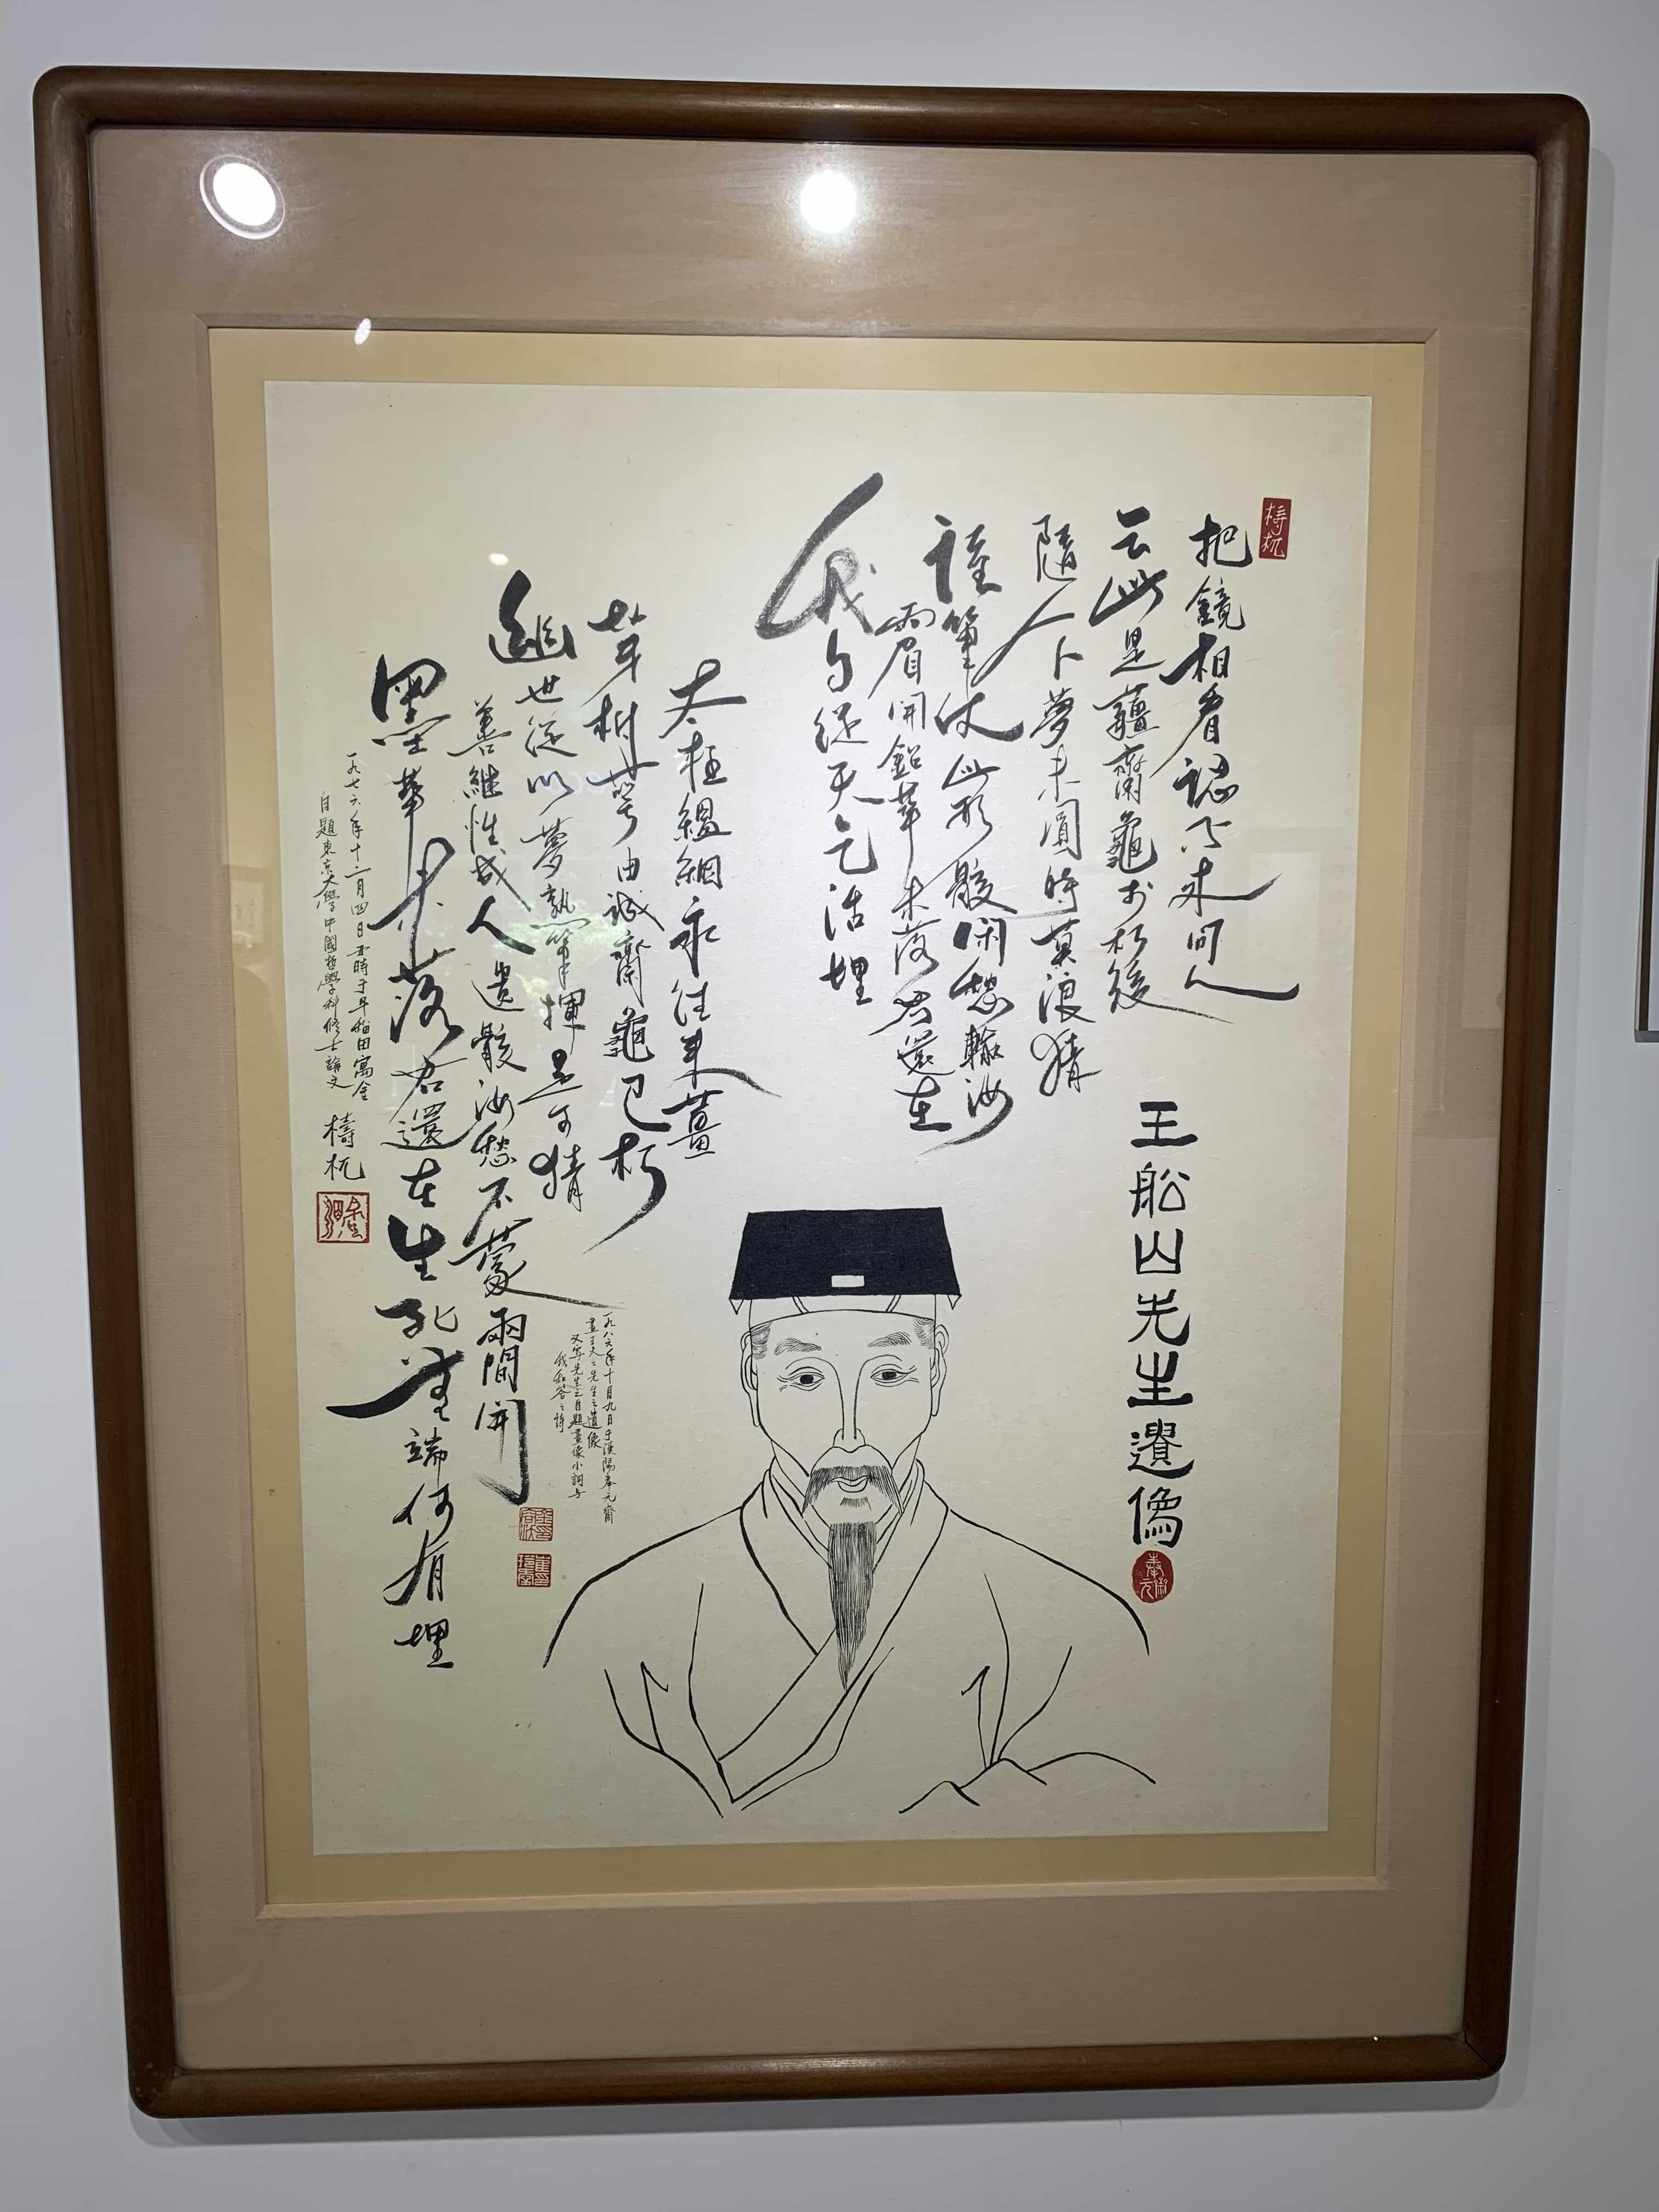 梼杌
把鏡相看認不來問人
云此是薑齋龜於朽後
隨人卜夢未圓時莫浪猜
誰筆仗此形骸閑愁輸汝
兩眉開鉛華未落君還在
我自從天乞活埋
王船山先生遺像
太極絪縕永往來薑
芽村萼由誠齋龜已朽
幽世從以夢孰筆揮
善繼性成人遺骸汝愁不蒙兩間開
墨華未落君還在生死無端何有埋
一九七六年十二月四日丑時于早稻田寓舍
自題東京大學中國哲學科修士論文
檮杌
一九八六年十月九日于漢陽奉元齋
畫王夫之先生之遺像
又寫先生之自題畫像小詞与
我和答之詩